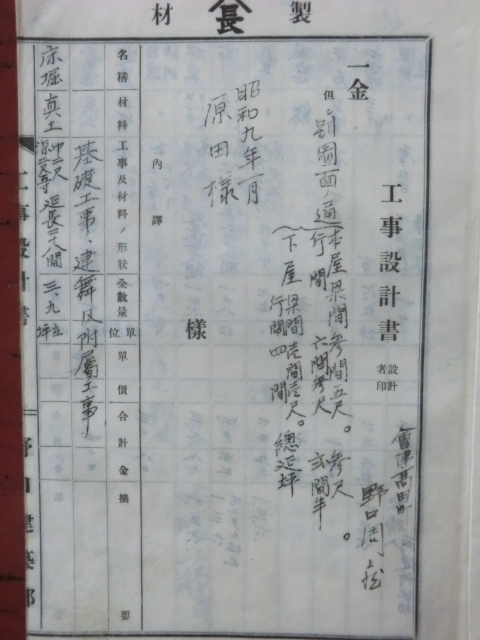 製
長
材
工事設計書
設計者印
會津高田町
野口周
一金
但別圖面ノ通
本屋梁間參間五尺。參尺
行間六間參尺 弐間半。
下屋梁間壱間壱尺。總延坪
行間四間
昭和九年一月
原田様
様
內譯
名稱 材料 工事及材料ノ形狀 全數量 單位 單價 合計金 摘要
基礎工事、建舞及附屬工事
床堀真土 巾二尺 深二尺 延長二八間 三.九 立坪
工事設計書
野口建築部